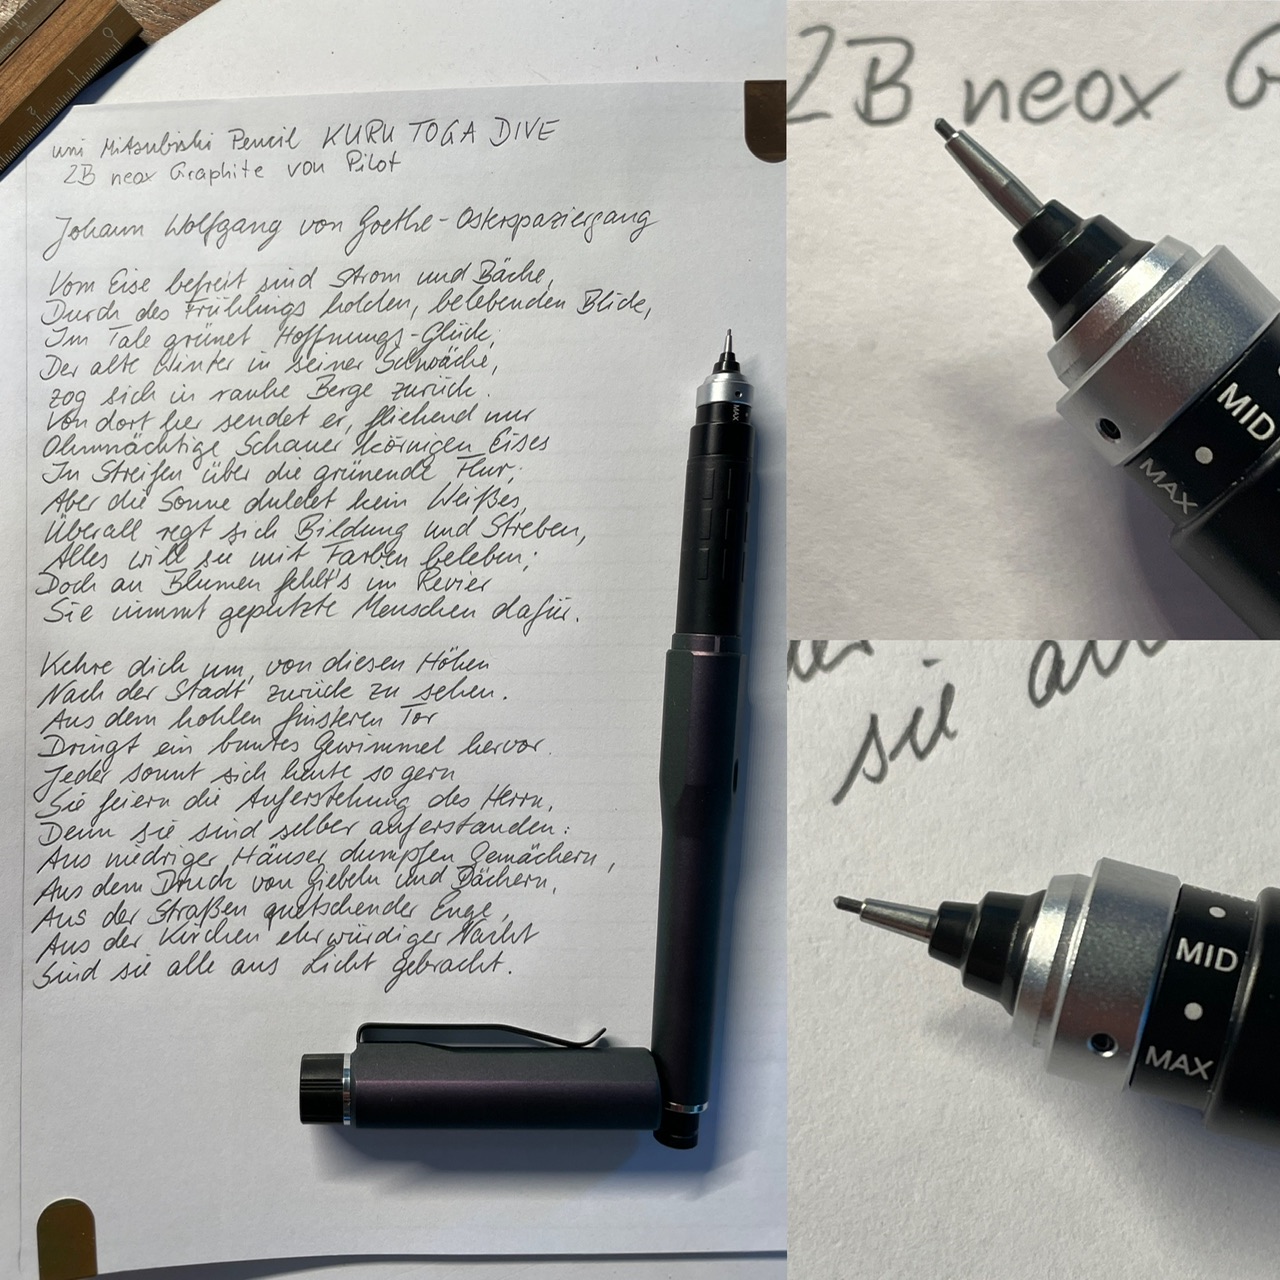 uni Mitsubishi Pencil KURU TOGA DIVE
2B neox Graphite von Pilot
Johann Wolfgang von Goethe - Osterspaziergang
Vom Eise befreit sind Strom und Bäche,
Durch des Frühlings holden, belebenden Blick,
Im Tale grünet Hoffnungs-Glück;
Der alte Winter in seiner Schwäche,
zog sich in rauhe Berge zurück.
Von dort her sendet er, fliehend nur
Ohnmächtige Schauer körnigen Eises
In Streifen über die grünende Flur;
Aber die Sonne duldet kein Weißes,
Überall regt sich Bildung und Streben,
Alles will sie mit Farben beleben;
Doch an Blumen fehlt's im Revier
Sie nimmt geputzte Menschen dafür.
Kehre dich um, von diesen Höhen
Nach der Stadt zurück zu sehen.
Aus dem hohlen finsteren Tor
Dringt ein buntes Gewimmel hervor.
Jeder sonnt sich heute so gern
Sie feiern die Auferstehung des Herrn,
Denn sie sind selber auferstanden:
Aus niedriger Häuser dumpfen Gemächern,
Aus dem Druck von Giebeln und Dächern,
Aus der Straßen quetschender Enge,
Aus der Kirchen ehrwürdiger Nacht
Sind sie alle ans Licht gebracht.
MAX
2B neox G
MID
MAX
sie an
MID
MAX